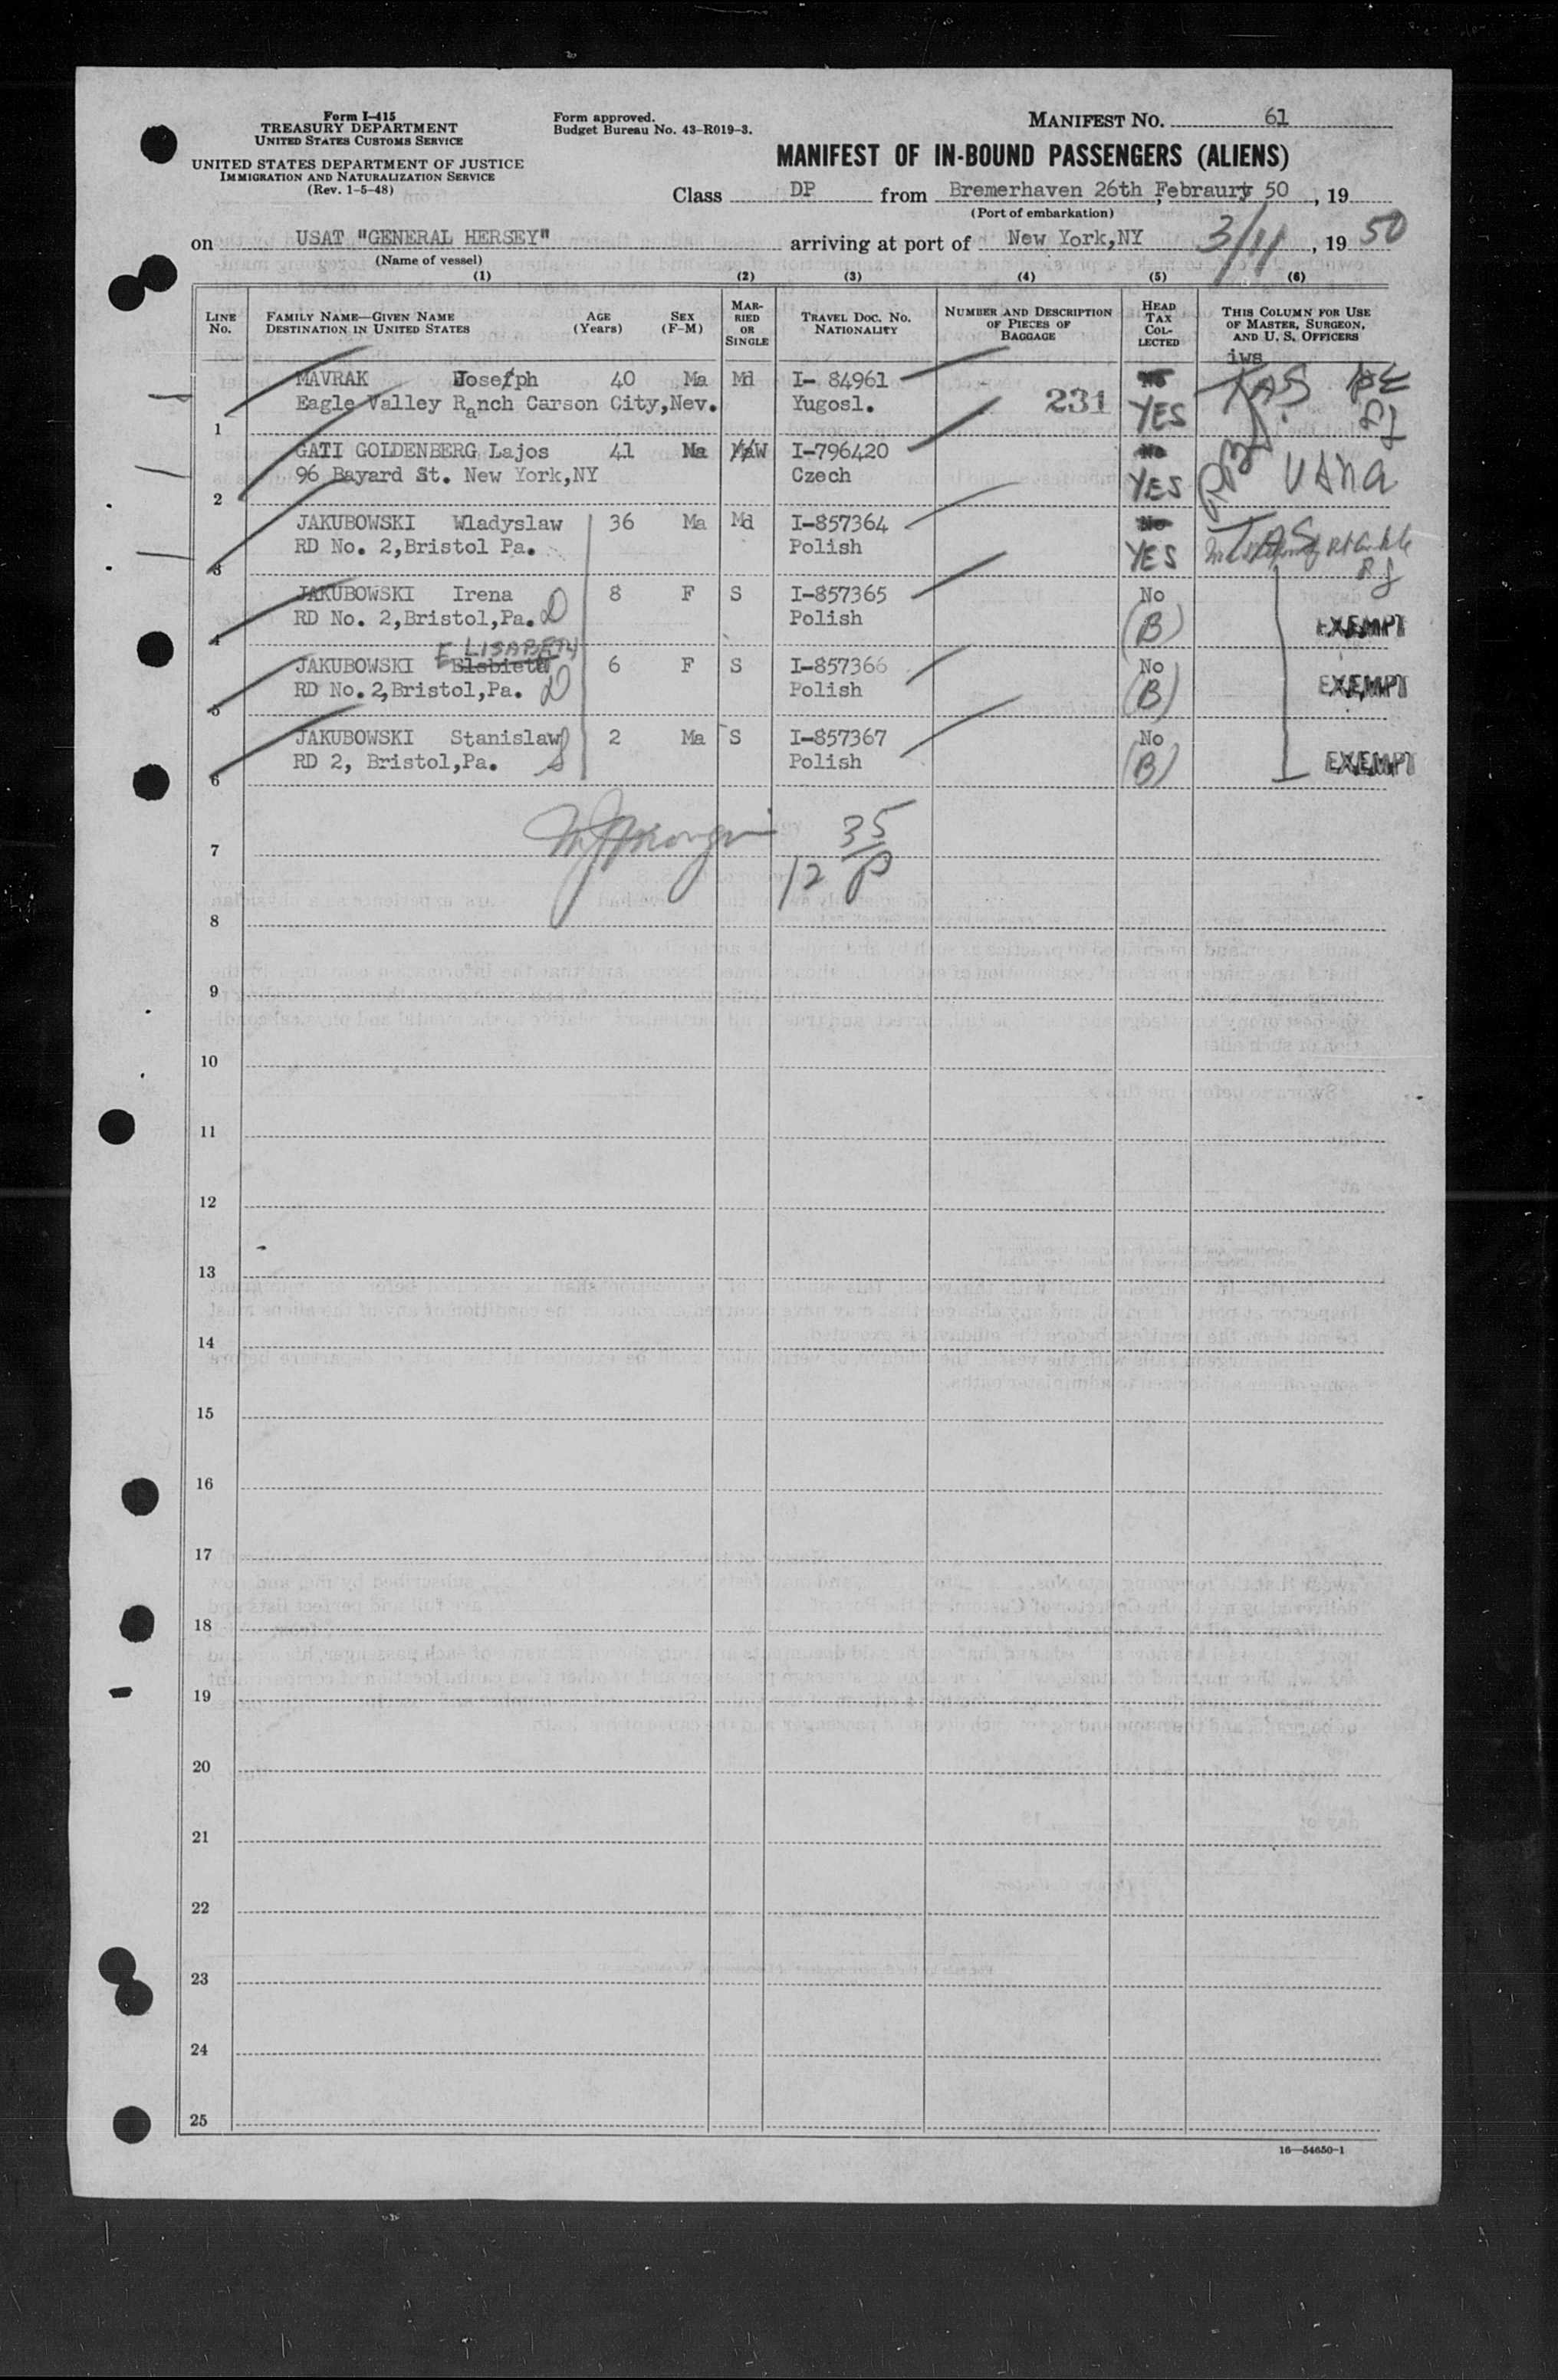 Form I-415
TREASURY DEPARTMENT
UNITED STATES CUSTOMS SERVICE
UNITED STATES DEPARTMENT OF JUSTICE
IMMIGRATION AND NATURALIZATION SERVICE
(Rev. 1-5-48)
Form approved.
Budget Bureau No. 43-R019-3.
MANIFEST NO. 61
MANIFEST OF IN-BOUND PASSENGERS (ALIENS)
Class DP from Bremerhaven 26th Febraury 50, 19
(Port of embarkation)
on USAT "GENERAL HERSEY" arriving at port of New York,NY 3/11, 19 50
(Name of vessel)
(1) (2) (3) (4) (5) (6)
LINE No. FAMILY NAME—GIVEN NAME DESTINATION IN UNITED STATES AGE (Years) SEX (F-M) MARRIED OR SINGLE TRAVEL DOC. NO. NATIONALITY NUMBER AND DESCRIPTION OF PIECES OF BAGGAGE HEAD TAX COLLECTED THIS COLUMN FOR USE OF MASTER, SURGEON, AND U. S. OFFICERS
iws
MAVRAK Joseph 40 Ma Md I- 84961 No TAS
Eagle Valley Ranch Carson City,Nev. Yugosl. 231 YES
1
GATI GOLDENBERG Lajos 41 Ma W I-796420 No
96 Bayard St. New York,NY Czech YES USNA
2
JAKUBOWSKI Wladyslaw 36 Ma Md I-857364 No TAS
RD No. 2,Bristol Pa. Polish YES
3
JAKUBOWSKI Irena 8 F S I-857365 No
RD No. 2,Bristol,Pa. D Polish (B) EXEMPT
4
ELISABETH
JAKUBOWSKI Elsbieta 6 F S I-857366 No
RD No.2,Bristol,Pa. D Polish (B) EXEMPT
5
JAKUBOWSKI Stanislaw 2 Ma S I-857367 No
RD 2, Bristol,Pa. S Polish (B) EXEMPT
6
35
7
12 P
8
9
10
11
12
13
14
15
16
17
18
19
20
21
22
23
24
25
16—54650-1